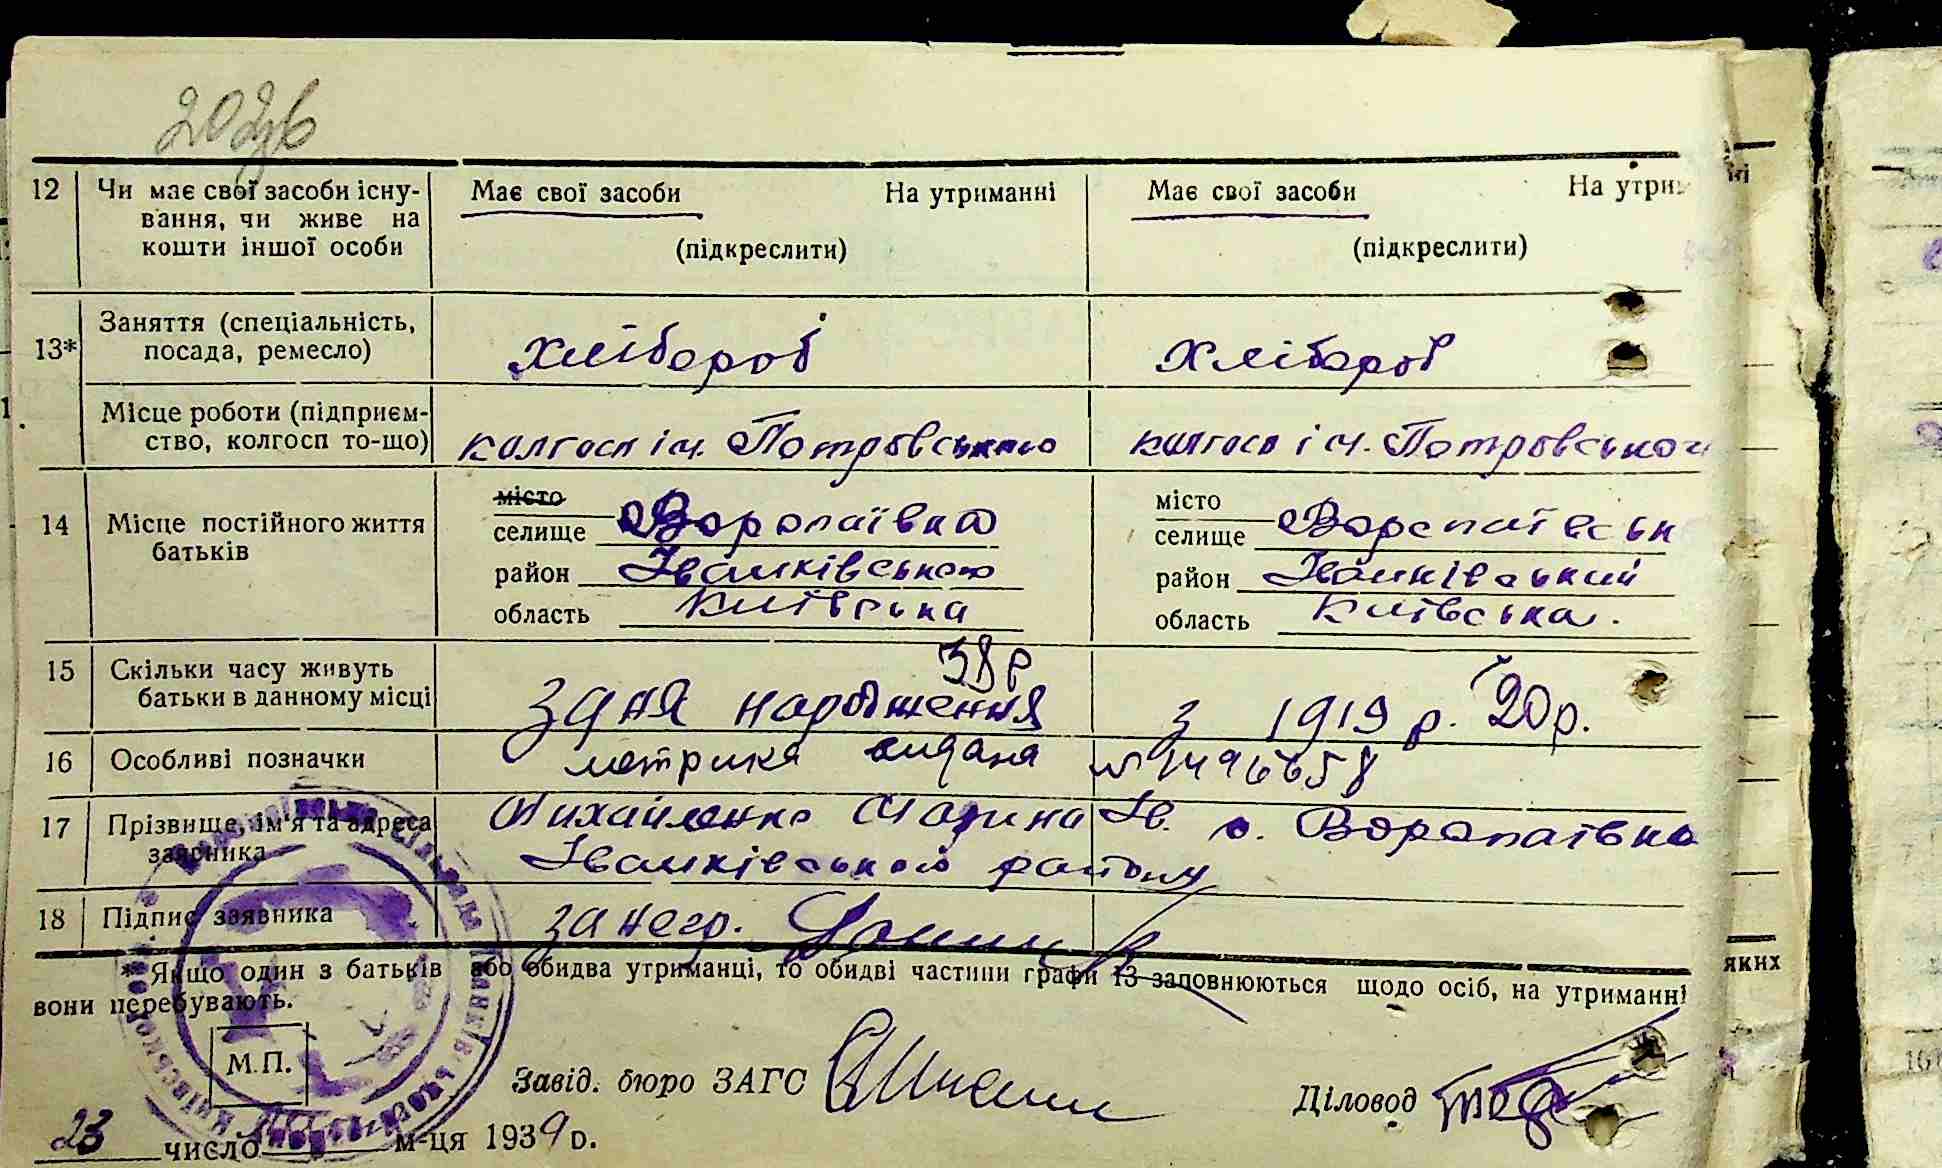 202 зв
12 Чи має свої засоби існу- Має свої засоби На утриманні Має свої засоби На утрим
вання, чи живе на
кошти іншої особи (підкреслити) (підкреслити)
13* Заняття (спеціальність,
посада, ремесло) хлібороб хлібороб
Місце роботи (підприєм-
ство, колгосп то-що) колгосп ім. Петровського колгосп ім. Петровського
14 Місце постійного життя
батьків
місто місто
селище Воропаївка селище Воропаївськ
район Іванківського район Іванківський
область Київська область Київська.
15 Скільки часу живуть 38 р
батьки в данному місці з дня народження з 1919 р. 20 р.
16 Особливі позначки метрика видана
17 Прізвище, ім'я та адреса Михайленко Ів. с. Воропаївка
заявника Іванківського району
18 Підпис заявника за негр.
* Якщо один з батьків або обидва утриманці, то обидві частини графи 13 заповнюються щодо осіб, на утриманні
яких
вони перебувають.
М.П.
Завід. бюро ЗАГС Діловод
23 число м-ця 1939 р.